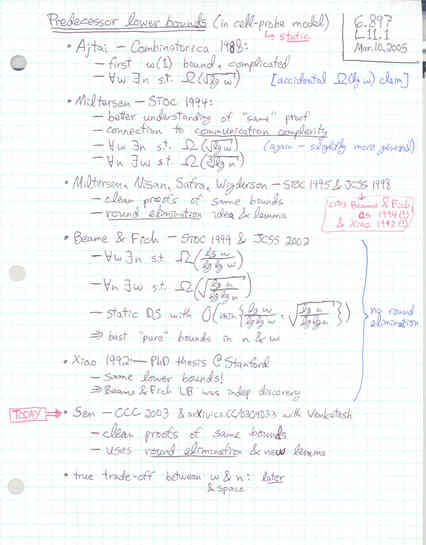 Predecessor lower bounds (in cell-probe model)
↳ static
6.897
L11.1
Mar.10,2005
• Ajtai — Combinatorica 1988:
— first ω(1) bound, complicated
— ∀w ∃n s.t. Ω(√lg w) [accidental Ω(lg w) claim]
• Miltersen — STOC 1994:
— better understanding of "same" proof
— connection to communication complexity
— ∀w ∃n s.t. Ω(√lg w) (again - slightly more general)
— ∀n ∃w s.t. Ω(∛lg n)
• Miltersen, Nisan, Safra, Wigderson — STOC 1995 & JCSS 1998
— clean proofs of same bounds
— round elimination idea & lemma
cites Beame & Fich
as 1994 (!)
& Xiao 1992 (!)
• Beame & Fich — STOC 1999 & JCSS 2002
— ∀w ∃n s.t. Ω(lg w / lg lg w)
— ∀n ∃w s.t. Ω(√(lg n / lg lg n))
— static DS with O(min{lg w / lg lg w, √(lg n / lg lg n)})
⇒ best "pure" bounds in n & w
no round
elimination
• Xiao 1992 — PhD thesis @ Stanford
— same lower bounds!
⇒ Beame & Fich LB was indep discovery
TODAY → • Sen — CCC 2003 & arXiv:cs.CC/0309033 with Venkatesh
— clean proofs of same bounds
— uses round elimination & new lemma
• true trade-off between w & n: later
& space